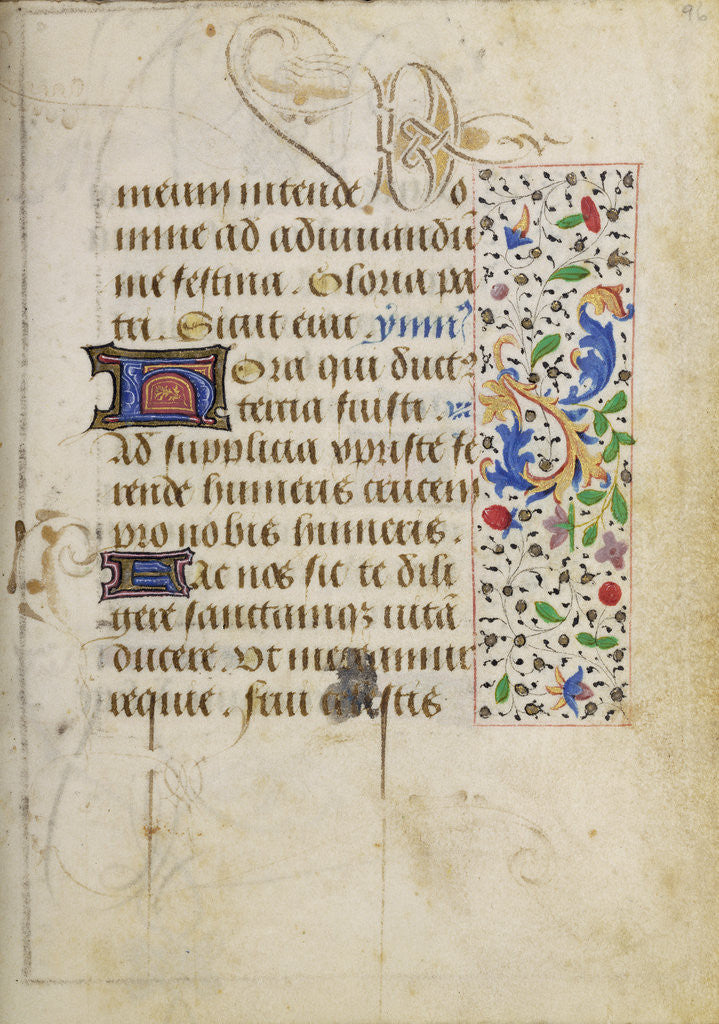 96
meum intende Do
mine ad adiuuandū
me festina. Gloria pa
tri. Sicut erat ymn9
Hora qui duct9
tercia fuisti
Ad supplicia xpriste fe
rende humeris crucem
pro nobis humeris.
Fac nos sic te dili
gere sanctamqz uitā
ducere. Vt mereamur
requie. frui celestis